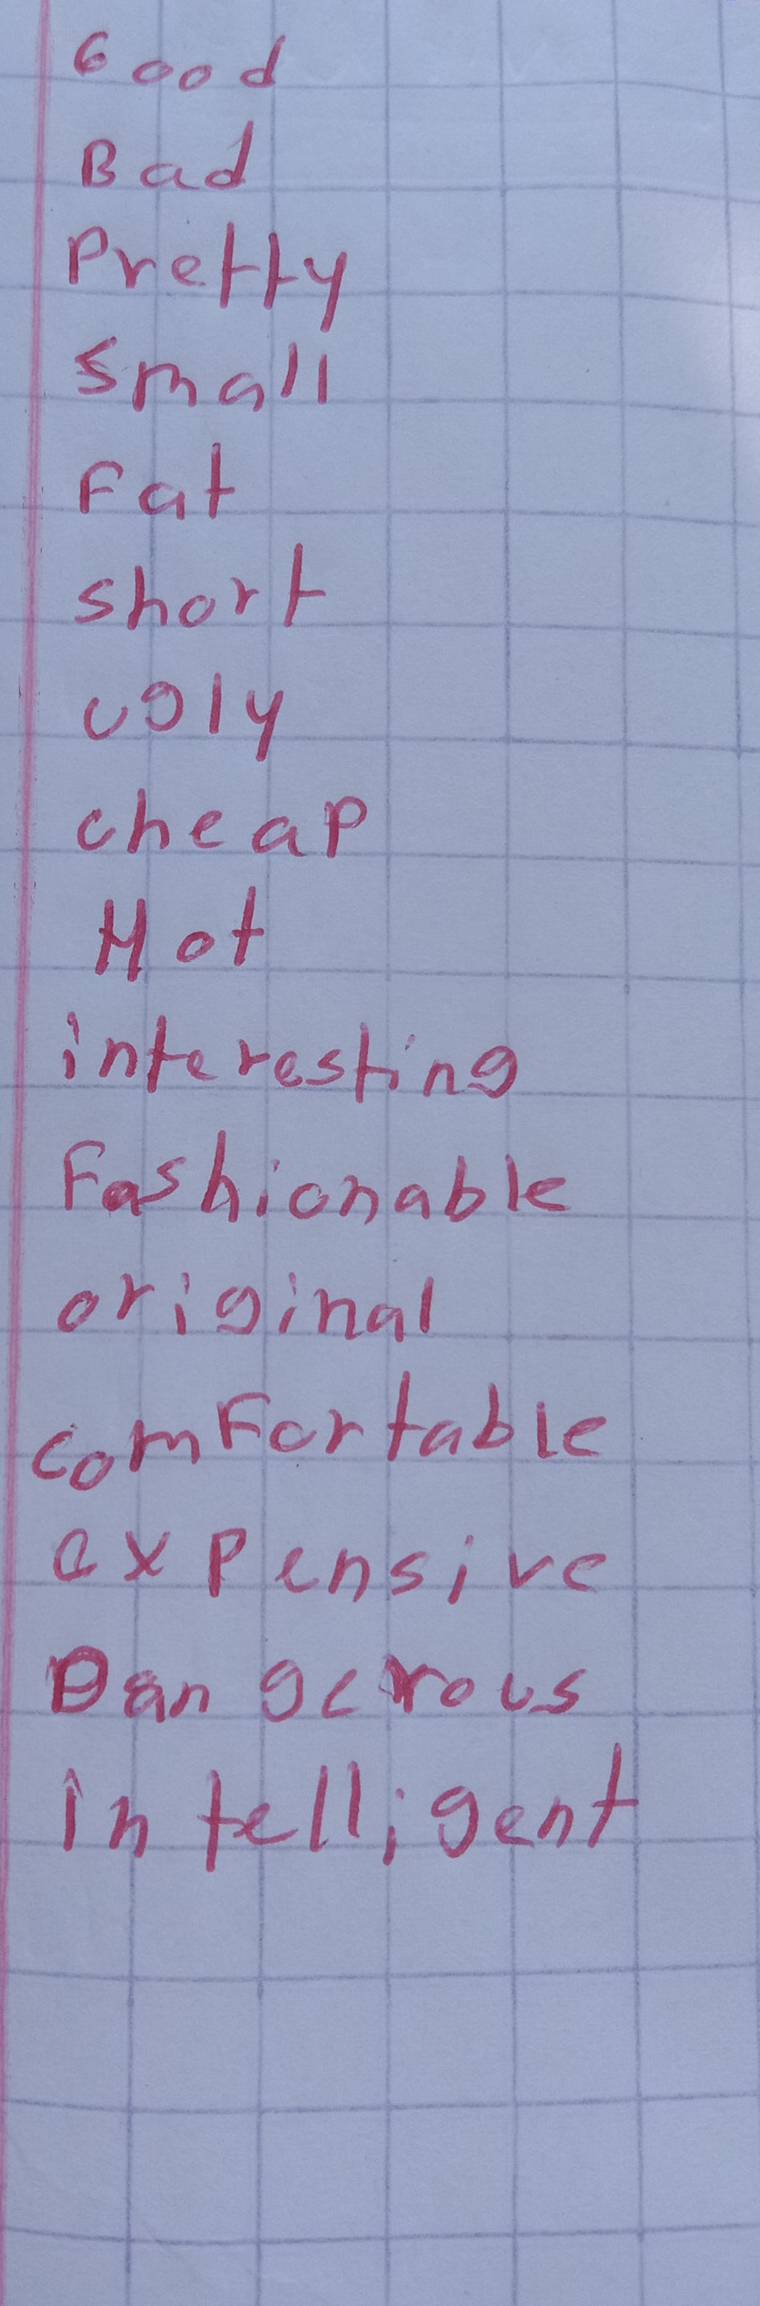 Good
Bad
Pretty
Small
Fat
short
ugly
cheap
Hot
interesting
Fashionable
original
comFortable
expensive
Dangerous
intelligent